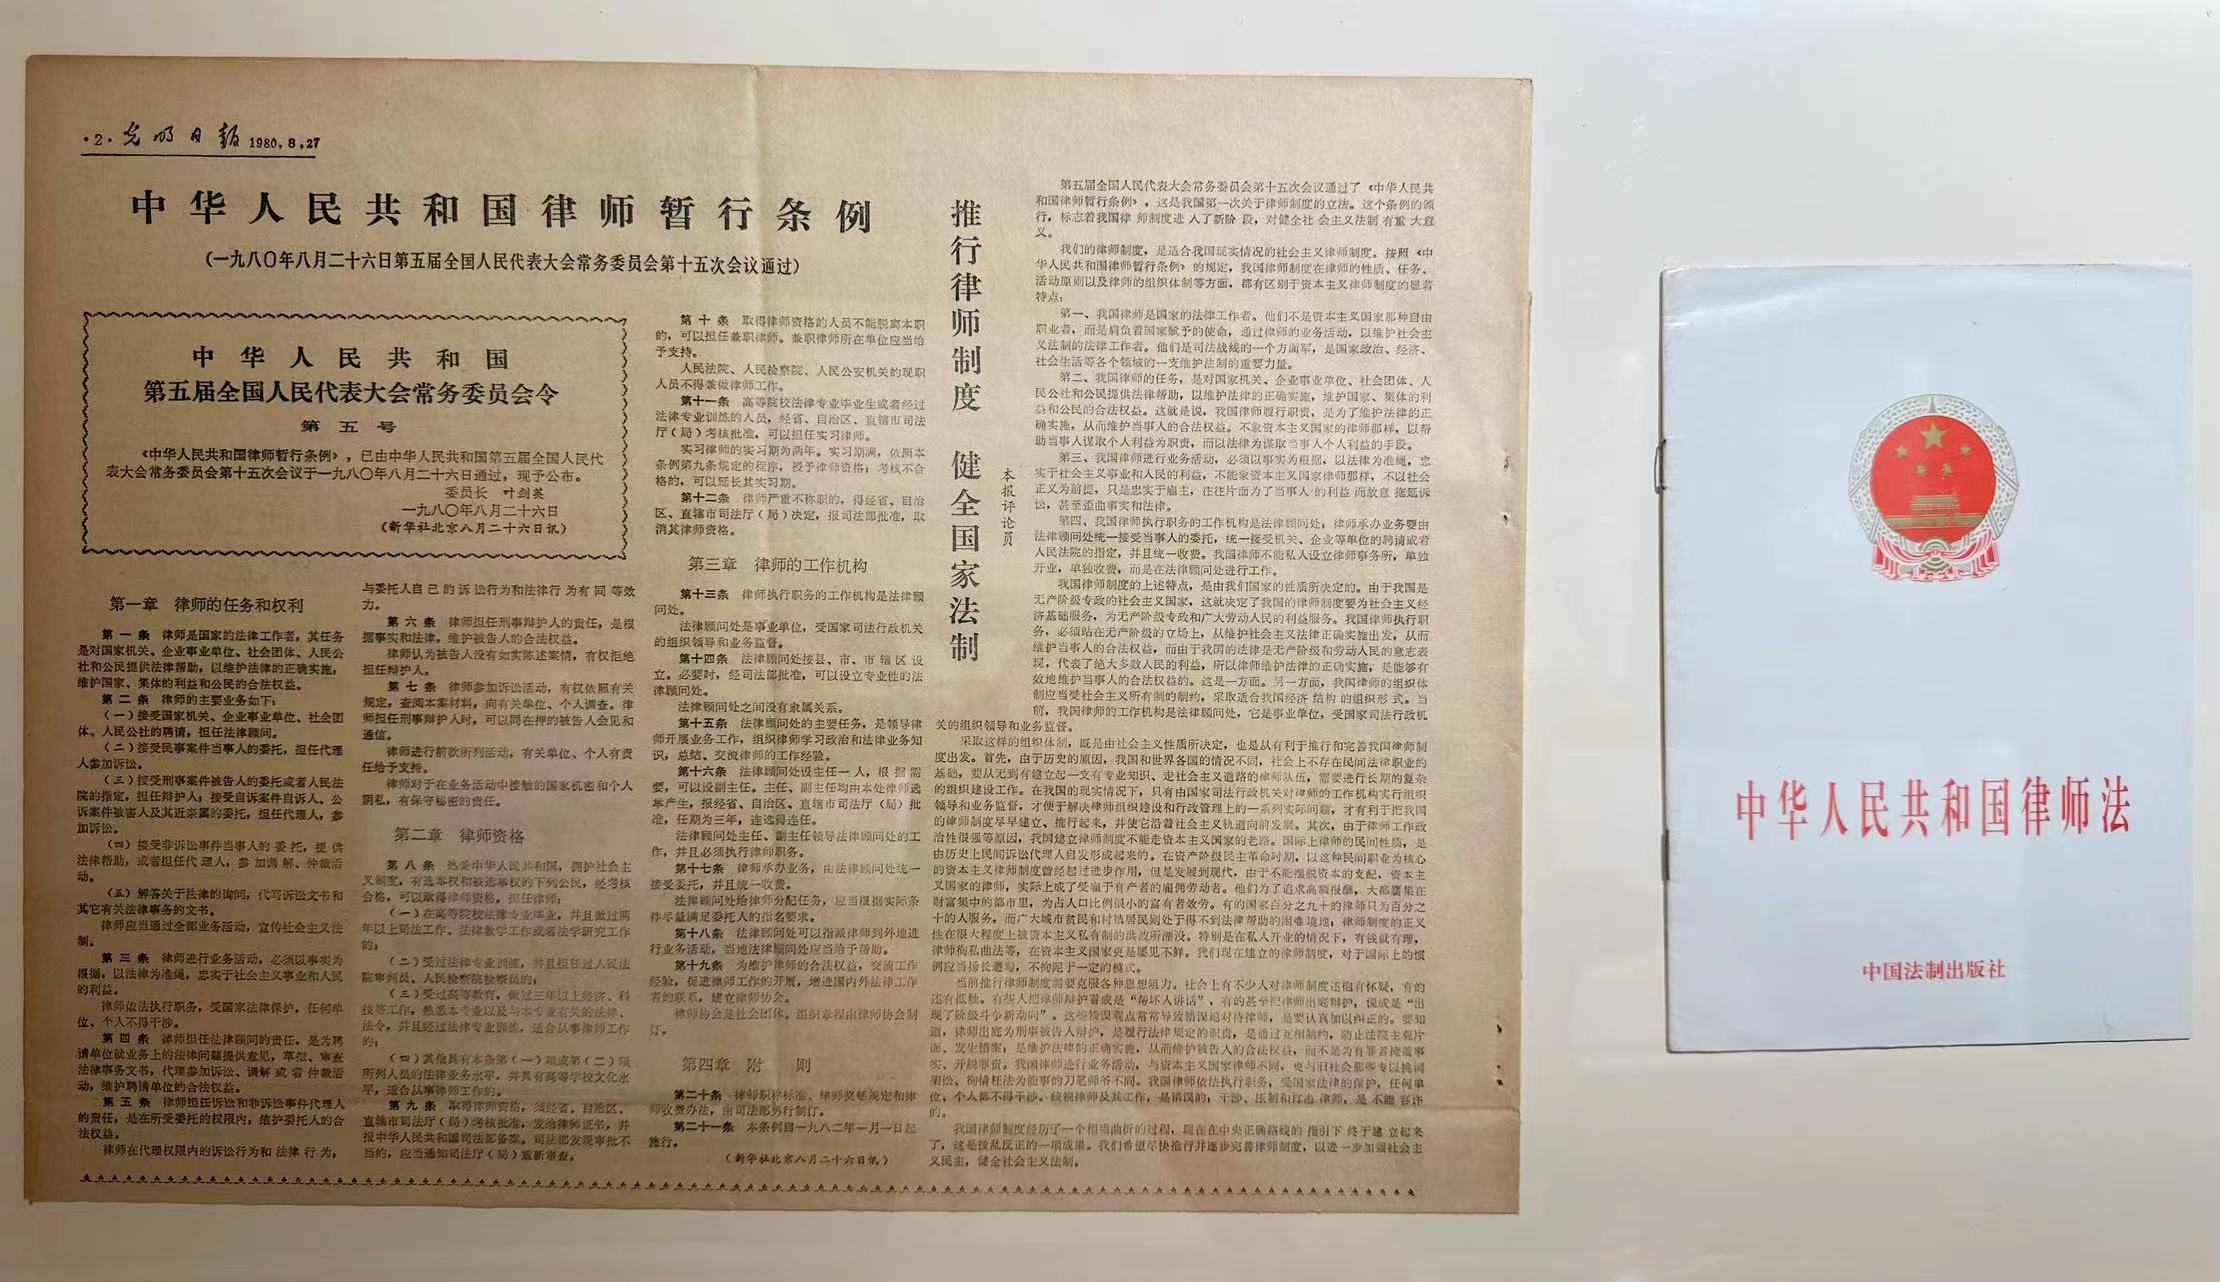 ·2·光明日报 1980.8.27
中华人民共和国律师暂行条例
(一九八〇年八月二十六日第五届全国人民代表大会常务委员会第十五次会议通过)
中华人民共和国
第五届全国人民代表大会常务委员会令
第五号
《中华人民共和国律师暂行条例》,已由中华人民共和国第五届全国人民代
表大会常务委员会第十五次会议于一九八〇年八月二十六日通过,现予公布。
委员长 叶剑英
一九八〇年八月二十六日
(新华社北京八月二十六日讯)
第一章 律师的任务和权利
第一条 律师是国家的法律工作者,其任务
是对国家机关、企业事业单位、社会团体、人民公
社和公民提供法律帮助,以维护法律的正确实施,
维护国家、集体的利益和公民的合法权益。
第二条 律师的主要业务如下:
(一)接受国家机关、企业事业单位、社会团
体、人民公社的聘请,担任法律顾问。
(二)接受民事案件当事人的委托,担任代理
人参加诉讼。
(三)接受刑事案件被告人的委托或者人民法
院的指定,担任辩护人;接受自诉案件自诉人、公
诉案件被害人及其近亲属的委托,担任代理人,参
加诉讼。
(四)接受非诉讼事件当事人的委托,提供
法律帮助,或者担任代理人,参加调解、仲裁活
动。
(五)解答关于法律的询问,代写诉讼文书和
其它有关法律事务的文书。
律师应当通过全部业务活动,宣传社会主义法
制。
第三条 律师进行业务活动,必须以事实为
根据,以法律为准绳,忠实于社会主义事业和人民
的利益。
律师依法执行职务,受国家法律保护,任何单
位、个人不得干涉。
第四条 律师担任法律顾问的责任,是为聘
请单位就业务上的法律问题提供意见,草拟、审查
法律事务文书,代理参加诉讼、调解或者仲裁活
动,维护聘请单位的合法权益。
第五条 律师担任诉讼和非诉讼事件代理人
的责任,是在所受委托的权限内,维护委托人的合
法权益。
律师在代理权限内的诉讼行为和法律行为,
与委托人自己的诉讼行为和法律行为有同等效
力。
第六条 律师担任刑事辩护人的责任,是根
据事实和法律,维护被告人的合法权益。
律师认为被告人没有如实陈述案情,有权拒绝
担任辩护人。
第七条 律师参加诉讼活动,有权依照有关
规定,查阅本案材料,向有关单位、个人调查。律
师担任刑事辩护人时,可以同在押的被告人会见和
通信。
律师进行前款所列活动,有关单位、个人有责
任给予支持。
律师对于在业务活动中接触的国家机密和个人
阴私,有保守秘密的责任。
第二章 律师资格
第八条 热爱中华人民共和国,拥护社会主
义制度,有选举权和被选举权的下列公民,经考核
合格,可以取得律师资格,担任律师:
(一)在高等院校法律专业毕业,并且做过两
年以上司法工作、法律教学工作或者法学研究工作
的;
(二)受过法律专业训练,并且担任过人民法
院审判员、人民检察院检察员的;
(三)受过高等教育,做过三年以上经济、科
技等工作,熟悉本专业以及与本专业有关的法律、
法令,并且经过法律专业训练,适合从事律师工作
的;
(四)其他具有本条第(一)项或第(二)项
所列人员的法律业务水平,并具有高等学校文化水
平,适合从事律师工作的。
第九条 取得律师资格,须经省、自治区、
直辖市司法厅(局)考核批准,发给律师证书,并
报中华人民共和国司法部备案。司法部发现审批不
当的,应当通知司法厅(局)重新审查。
第十条 取得律师资格的人员不能脱离本职
的,可以担任兼职律师。兼职律师所在单位应当给
予支持。
人民法院、人民检察院、人民公安机关的现职
人员不得兼做律师工作。
第十一条 高等院校法律专业毕业生或者经过
法律专业训练的人员,经省、自治区、直辖市司法
厅(局)考核批准,可以担任实习律师。
实习律师的实习期为两年。实习期满,依照本
条例第九条规定的程序,授予律师资格;考核不合
格的,可以延长其实习期。
第十二条 律师严重不称职的,得经省、自治
区、直辖市司法厅(局)决定,报司法部批准,取
消其律师资格。
第三章 律师的工作机构
第十三条 律师执行职务的工作机构是法律顾
问处。
法律顾问处是事业单位,受国家司法行政机关
的组织领导和业务监督。
第十四条 法律顾问处按县、市、市辖区设
立。必要时,经司法部批准,可以设立专业性的法
律顾问处。
法律顾问处之间没有隶属关系。
第十五条 法律顾问处的主要任务,是领导律
师开展业务工作,组织律师学习政治和法律业务知
识,总结、交流律师的工作经验。
第十六条 法律顾问处设主任一人,根据需
要,可以设副主任。主任、副主任均由本处律师选
举产生,报经省、自治区、直辖市司法厅(局)批
准,任期为三年,连选得连任。
法律顾问处主任、副主任领导法律顾问处的工
作,并且必须执行律师职务。
第十七条 律师承办业务,由法律顾问处统一
接受委托,并且统一收费。
法律顾问处给律师分配任务,应当根据实际条
件尽量满足委托人的指名要求。
第十八条 法律顾问处可以指派律师到外地进
行业务活动,当地法律顾问处应当给予帮助。
第十九条 为维护律师的合法权益,交流工作
经验,促进律师工作的开展,增进国内外法律工作
者的联系,建立律师协会。
律师协会是社会团体。组织章程由律师协会制
订。
第四章 附则
第二十条 律师职称标准、律师奖惩规定和律
师收费办法,由司法部另行制订。
第二十一条 本条例自一九八二年一月一日起
施行。
(新华社北京八月二十六日讯)
推行律师制度 健全国家法制
本报评论员
第五届全国人民代表大会常务委员会第十五次会议通过了《中华人民共
和国律师暂行条例》,这是我国第一次关于律师制度的立法。这个条例的颁
行,标志着我国律师制度进入了新阶段,对健全社会主义法制有重大意
义。
我们的律师制度,是适合我国现实情况的社会主义律师制度。按照《中
华人民共和国律师暂行条例》的规定,我国律师制度在律师的性质、任务、
活动原则以及律师的组织体制等方面,都有区别于资本主义律师制度的显着
特点:
第一、我国律师是国家的法律工作者。他们不是资本主义国家那种自由
职业者,而是肩负着国家赋予的使命,通过律师的业务活动,以维护社会主
义法制的法律工作者。他们是司法战线的一个方面军,是国家政治、经济、
社会生活等各个领域的一支维护法制的重要力量。
第二、我国律师的任务,是对国家机关、企业事业单位、社会团体、人
民公社和公民提供法律帮助,以维护法律的正确实施,维护国家、集体的利
益和公民的合法权益。这就是说,我国律师履行职责,是为了维护法律的正
确实施,从而维护当事人的合法权益。不象资本主义国家的律师那样,以帮
助当事人谋取个人利益为职责,而以法律为谋取当事人个人利益的手段。
第三、我国律师进行业务活动,必须以事实为根据,以法律为准绳,忠
实于社会主义事业和人民的利益,不能象资本主义国家律师那样,不以社会
正义为前提,只是忠实于雇主,往往片面为了当事人的利益而故意拖延诉
讼,甚至歪曲事实和法律。
第四、我国律师执行职务的工作机构是法律顾问处;律师承办业务要由
法律顾问处统一接受当事人的委托,统一接受机关、企业等单位的聘请或者
人民法院的指定,并且统一收费。我国律师不能私人设立律师事务所,单独
开业,单独收费,而是在法律顾问处进行工作。
我国律师制度的上述特点,是由我们国家的性质所决定的。由于我国是
无产阶级专政的社会主义国家,这就决定了我国的律师制度要为社会主义经
济基础服务,为无产阶级专政和广大劳动人民的利益服务。我国律师执行职
务,必须站在无产阶级的立场上,从维护社会主义法律正确实施出发,从而
维护当事人的合法权益,而由于我国的法律是无产阶级和劳动人民的意志表
现,代表了绝大多数人民的利益,所以律师维护法律的正确实施,是能够有
效地维护当事人的合法权益的。这是一方面。另一方面,我国律师的组织体
制应当受社会主义所有制的制约,采取适合我国经济结构的组织形式。当
前,我国律师的工作机构是法律顾问处,它是事业单位,受国家司法行政机
关的组织领导和业务监督。
采取这样的组织体制,既是由社会主义性质所决定,也是从有利于推行和完善我国律师制
度出发。首先,由于历史的原因,我国和世界各国的情况不同,社会上不存在民间法律职业的
基础,要从无到有建立起一支有专业知识、走社会主义道路的律师队伍,需要进行长期的复杂
的组织建设工作。在我国的现实情况下,只有由国家司法行政机关对律师的工作机构实行组织
领导和业务监督,才便于解决律师组织建设和行政管理上的一系列实际问题,才有利于把我国
的律师制度尽早建立、推行起来,并使它沿着社会主义轨道向前发展。其次,由于律师工作政
治性很强等原因,我国建立律师制度不能走资本主义国家的老路。国际上律师的民间性质,是
由历史上民间诉讼代理人自发形成起来的。在资产阶级民主革命时期,以这种民间职业为核心
的资本主义律师制度曾经起过进步作用,但是发展到现代,由于不能摆脱资本的支配,资本主
义国家的律师,实际上成了受雇于有产者的雇佣劳动者。他们为了追求高额报酬,大都麕集在
财富集中的都市里,为占人口比例很小的富有者效劳。有的国家百分之九十的律师只为百分之
十的人服务,而广大城市贫民和村镇居民则处于得不到法律帮助的困难境地;律师制度的正义
性在很大程度上被资本主义私有制的洪波所湮没。特别是在私人开业的情况下,有钱就有理,
律师徇私曲法等,在资本主义国家更是屡见不鲜。我们现在建立的律师制度,对于国际上的惯
例应当扬长避短,不拘泥于一定的模式。
当前推行律师制度需要克服各种思想阻力。社会上有不少人对律师制度还抱有怀疑,有的
还有抵触。有些人把律师辩护看成是“帮坏人讲话”,有的甚至把律师出庭辩护,说成是“出
现了阶级斗争新动向”。这些错误观点常常导致错误地对待律师,是要认真加以纠正的。要知
道,律师出庭为刑事被告人辩护,是履行法律规定的职责,是通过互相制约,防止法院主观片
面、发生错案;是维护法律的正确实施,从而维护被告人的合法权益,而不是为有罪者掩盖事
实、开脱罪责。我国律师进行业务活动,与资本主义国家律师不同,更与旧社会那些专以挑词
架讼、徇情枉法为能事的刀笔师爷不同。我国律师依法执行职务,受国家法律的保护,任何单
位、个人都不得干涉。歧视律师及其工作,是错误的;干涉、压制和打击律师,是不能容许
的。
我国律师制度经历了一个相当曲折的过程,现在在中央正确路线的指引下终于建立起来
了,这是拨乱反正的一项成果。我们希望尽快推行并逐步完善律师制度,以进一步加强社会主
义民主,健全社会主义法制。
中华人民共和国律师法
中国法制出版社